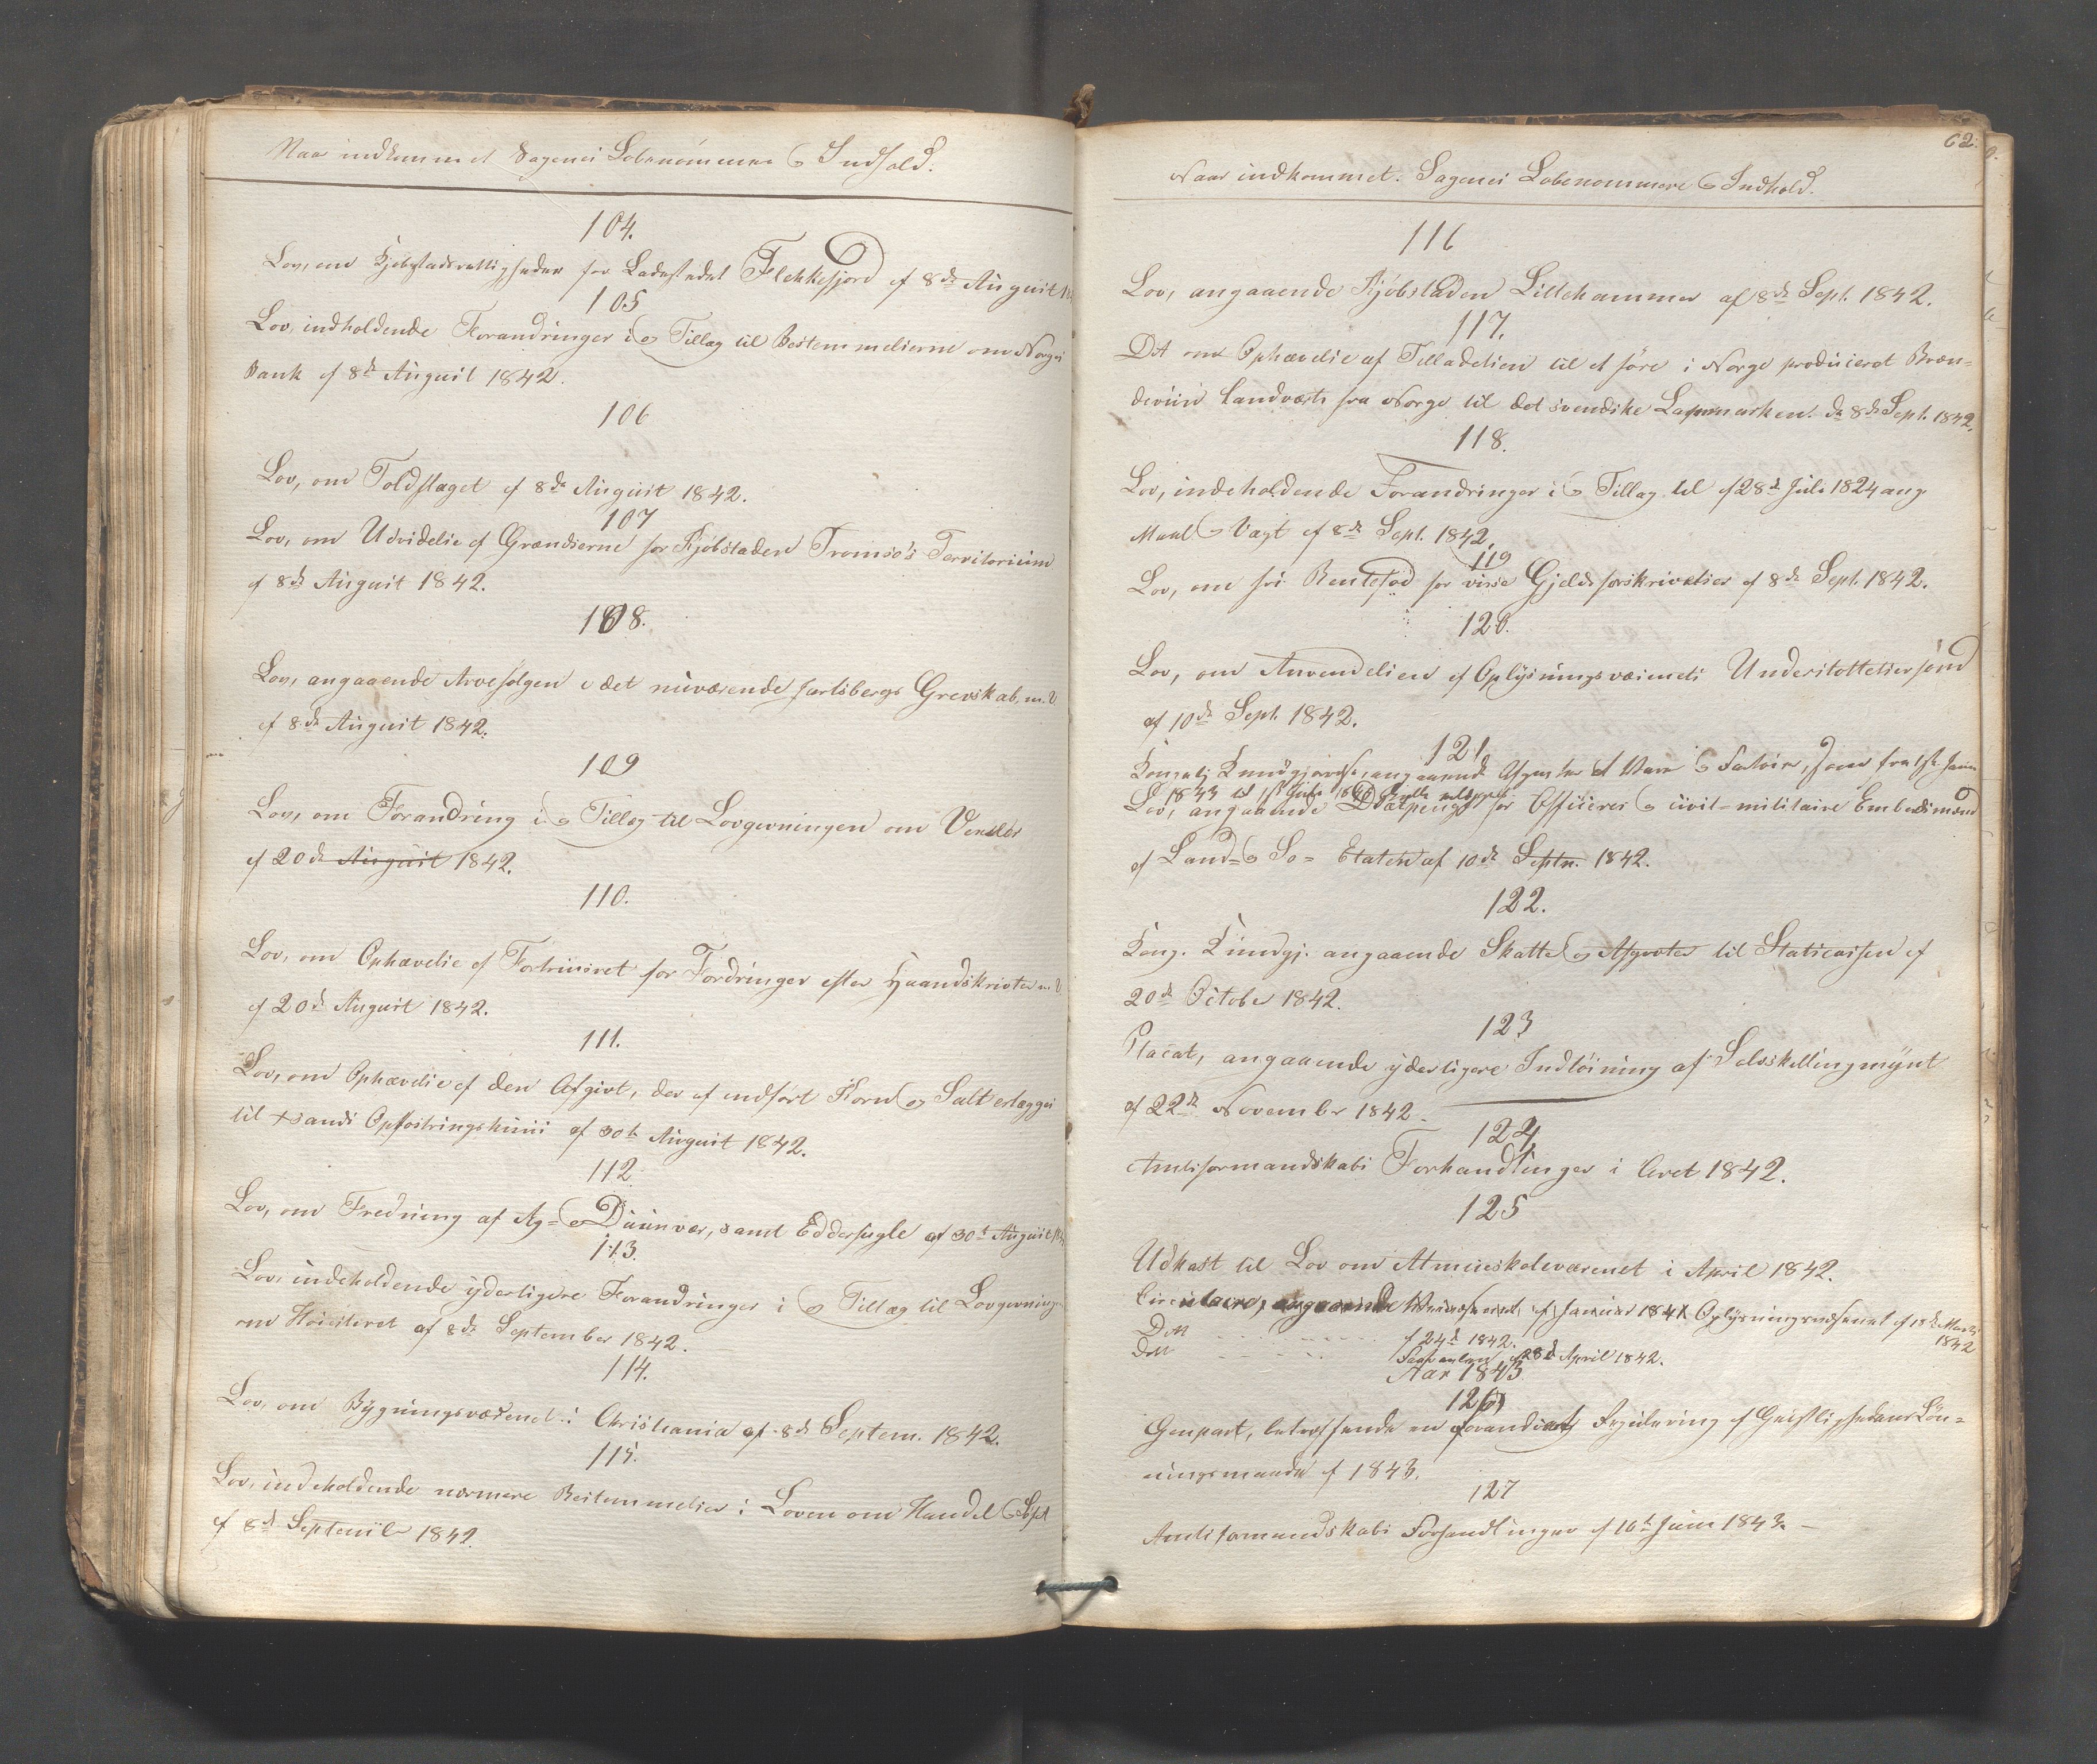 Naar indkommet Sagenes Løbenommere & Indhold.
104.
Lov, om Kjøbstadsrettigheder for Ladestedet Flekkefjord af 8de August
105
Lov, indholdende Forandringer i & Tillæg til Bestemmelserne om Norges
Bank af 8de August 1842.
106
Lov, om Toldflaget af 8de August 1842.
107
Lov, om Udvidelse af Grændserne for Kjøbstaden Tromsø's Territorium
af 8de August 1842.
108.
Lov, angaaende Arvefølgen i det nuværende Jarlsbergs Grevskab, m.V.
af 8de August 1842.
109
Lov, om Forandring i & Tillæg til Lovgivningen om Vexler
af 20de August 1842.
110.
Lov, om Ophævelse af Fortrinsret for Fordringer efter Haandskrivter m.V.
af 20de August 1842.
111.
Lov, om Ophævelse af den Afgivt, der af indført Korn & Salt erlægges
til Xsands Opfostringshuus af 30te August 1842.
112.
Lov, om Fredning af Æg- & Duunvær, samt Edderfugle af 30te August
113.
Lov, indeholdende yderligere Forandringer i & Tillæg til Lovgivningen
om Høiesteret af 8de September 1842.
114.
Lov, om Bygningsvæsenet i Christiania af 8de Septem. 1842.
115.
Lov, indeholdende nærmere Bestemmelser i Loven om Handel &
af 8de Septembr 1842.
62.
Naar indkommet. Sagenes Løbenommere & Indhold.
116
Lov, angaaende Kjøbstaden Lillehammer af 8de Sept. 1842.
117.
Dt om Ophævelse af Tilladelsen til at føre i Norge produceret Bræn-
deviin landværts fra Norge til det svendske Lapmarken. da 8de Sept. 1842.
118.
Lov, indeholdende Forandringer i & Tillæg til af 28de Juli 1824 ang.
Maal & Vægt af 8de Sept. 1842.
119
Lov, om fri Rentefod for visse Gjeldsforskrivelser af 8de Sept. 1842.
120.
Lov, om Anvendelsen af Oplysningsvæsenets Understøttelsesfond
af 10de Sept. 1842.
121.
Kongelig Kundgjørelse, angaaende Afgifter af Vare & Fartøier, som fra 1ste Januar
1843 til 1ste Juli 1846
Lov, angaaende Diætpenge for Officerer & civil-militaire Embedsmænd
af Land- & Sø- Etaten af 10de Septr. 1842.
122.
Kong. Kundgj. angaaende Skatte & Afgivter til Statscassen af
20de October 1842.
123
Placat, angaaende yderligere Indløsning af Sølvskillingmynt
af 22de November 1842.
124
Amtsformandskabs Forhandlinger i Aaret 1842.
125
Udkast til Lov om Almueskolevæsenet i April 1842.
Circulaire, angaaende af Januar 1841 Oplysningsvæsenet af 18de Marts
1842
Ditto - - - - - - af 24de 1842.
Ditto - - - - - - af 28de April 1842.
Aar 1843
126
Genpart, betreffende en forandret Regulering af Geistlighedens Løn-
ningsmaade af 1843.
127
Amtsformandskabs Forhandlinger af 16de Juni 1843. -